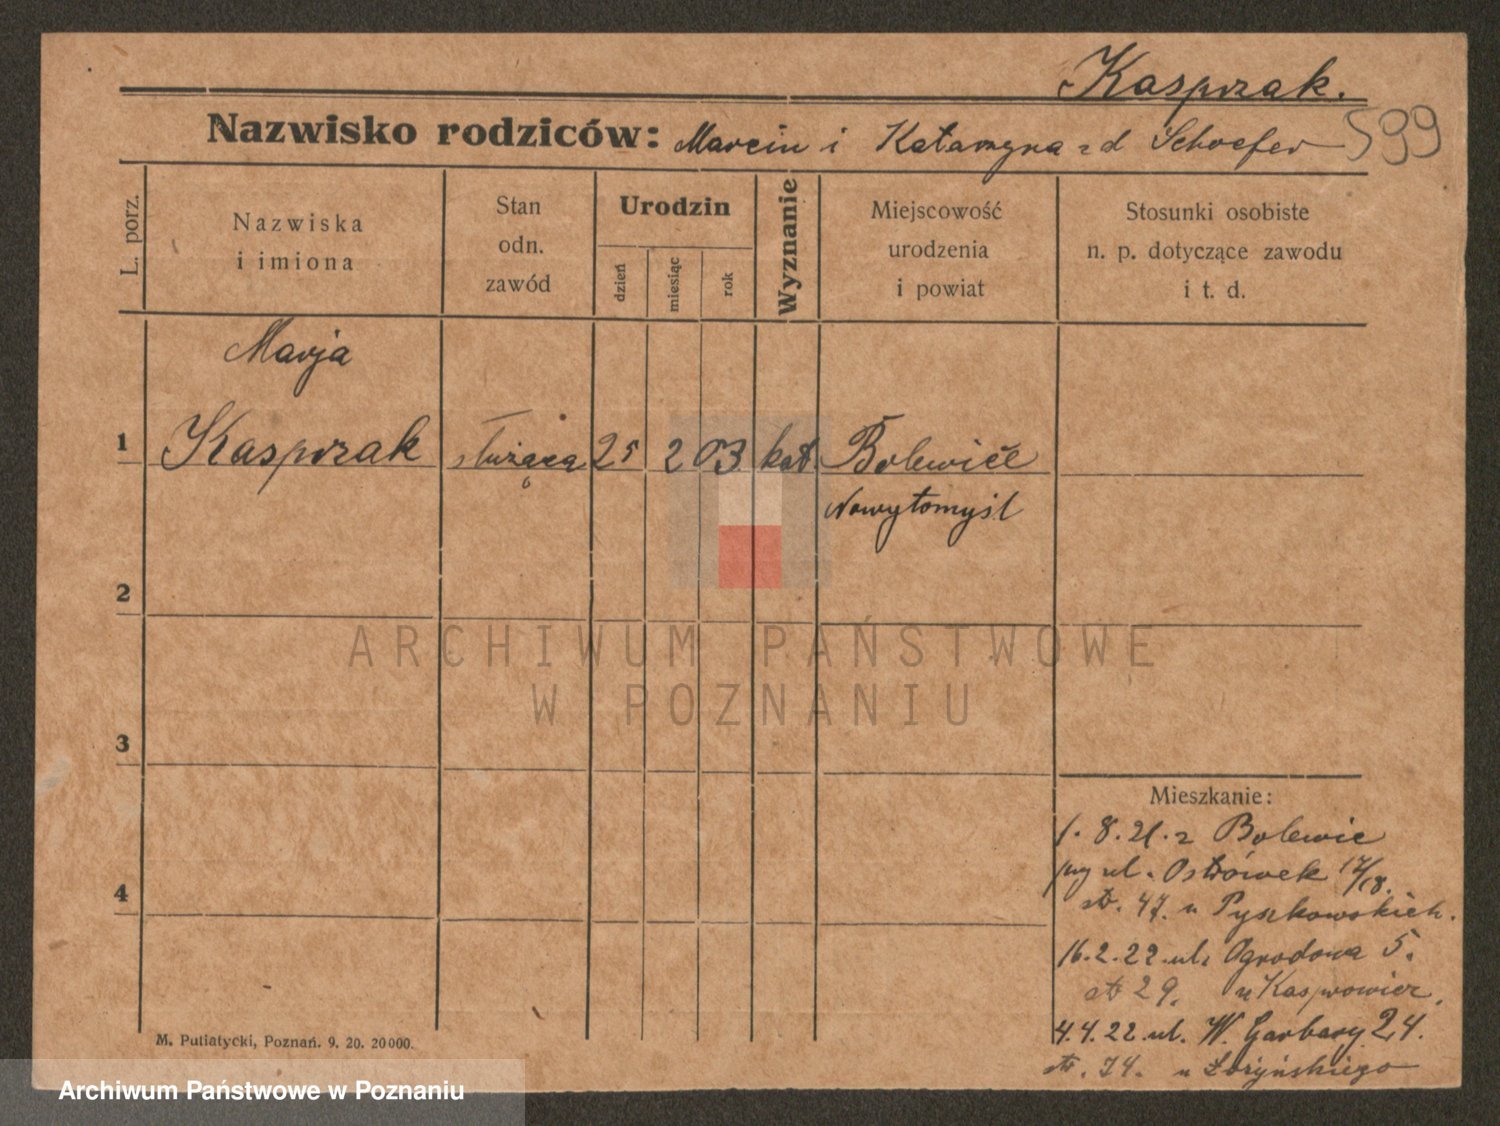 Kasprzak.
Nazwisko rodziców: Marcin i Katarzyna zd Schoefer 599
L. porz.
Nazwiska
i imiona
Stan
odn.
zawód
Urodzin
dzień
miesiąc
rok
Wyznanie
Miejscowość
urodzenia
i powiat
Stosunki osobiste
n. p. dotyczące zawodu
i t. d.
Marja
1 Kasprzak służąca 25 2 03 kat. Bolewice
Nowytomyśl
2
3
4
Mieszkanie:
1. 8. 21. z Bolewic
ul. Ostrówek 17/18.
str. 47. u Pyszkowskich.
16.2.22. ul. Ogrodowa 5.
str 29. u Kasprowicz.
4.4.22. ul. W. Garbary 24.
str. 74. u
M. Putiatycki, Poznań. 9. 20. 20000.
ARCHIWUM PAŃSTWOWE
W POZNANIU
Archiwum Państwowe w Poznaniu